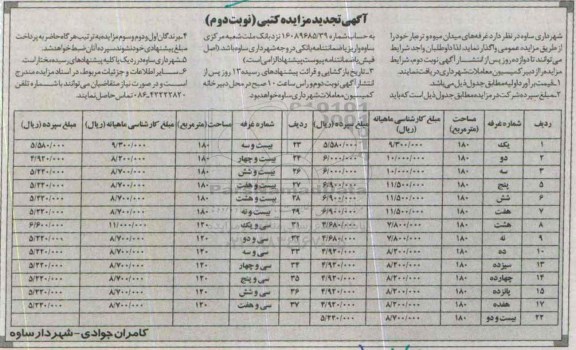 آگهی تجدید مزایده کتبی (نوبت دوم)
شهرداری ساوه در نظر دارد غرفه‌های میدان میوه و تره‌بار خود را
از طریق مزایده عمومی واگذار نماید، لذا داوطلبان واجد شرایط
می‌توانند تا دوازده روز پس از انتشار آگهی نوبت دوم، شرایط
مزایده را از دبیر کمیسیون معاملات شهرداری دریافت نمایند.
۱ـ قیمت برآورد اولیه مطابق جدول ذیل می‌باشد
۲ـ مبلغ سپرده شرکت در مزایده مطابق جدول ذیل است که باید
به حساب شماره ۱۶۰۸۹۶۸۵/۳۹ نزد بانک ملت شعبه مرکزی
ساوه واریز یا ضمانتنامه بانکی در وجه شهرداری ساوه باشد. (اصل
فیش یا ضمانتنامه پیوست پیشنهاد الزامی است)
۳ـ تاریخ بازگشایی و قرائت پیشنهادهای رسیده ۱۳ روز پس از
انتشار آگهی نوبت دوم و راس ساعت ۱۰ صبح در محل دبیرخانه
کمیسیون معاملات شهرداری ساوه خواهد بود.
۴ـ برندگان اول و دوم و سوم مزایده به ترتیب هرگاه حاضر به پرداخت
مبلغ پیشنهادی خود نشوند سپرده آنان ضبط خواهد شد.
۵ـ شهرداری ساوه در رد یک یا کلیه پیشنهادهای رسیده مختار است.
۶ـ سایر اطلاعات و جزئیات مربوط، در اسناد مزایده مندرج
است و در صورت نیاز متقاضیان می‌توانند با شماره تلفن
۰۸۶ـ۴۲۲۲۲۸۲۰ تماس حاصل نمایند.
ردیف شماره غرفه مساحت (مترمربع) مبلغ کارشناسی ماهیانه (ریال) مبلغ سپرده (ریال) ردیف شماره غرفه مساحت (مترمربع) مبلغ کارشناسی ماهیانه (ریال) مبلغ سپرده (ریال)
۱ یک ۱۸۰ ۹/۳۰۰/۰۰۰ ۵/۵۸۰/۰۰۰ ۲۳ بیست و سه ۱۸۰ ۹/۳۰۰/۰۰۰ ۵/۵۸۰/۰۰۰
۲ دو ۱۸۰ ۱۰/۰۰۰/۰۰۰ ۶/۰۰۰/۰۰۰ ۲۴ بیست و چهار ۱۸۰ ۸/۲۰۰/۰۰۰ ۴/۹۲۰/۰۰۰
۳ سه ۱۸۰ ۱۰/۰۰۰/۰۰۰ ۶/۰۰۰/۰۰۰ ۲۶ بیست و شش ۱۸۰ ۸/۷۰۰/۰۰۰ ۵/۲۲۰/۰۰۰
۵ پنج ۱۸۰ ۱۱/۵۰۰/۰۰۰ ۶/۹۰۰/۰۰۰ ۲۷ بیست و هفت ۱۸۰ ۸/۷۰۰/۰۰۰ ۵/۲۲۰/۰۰۰
۶ شش ۱۸۰ ۱۱/۵۰۰/۰۰۰ ۶/۹۰۰/۰۰۰ ۲۸ بیست و هشت ۱۸۰ ۸/۷۰۰/۰۰۰ ۵/۲۲۰/۰۰۰
۷ هفت ۱۸۰ ۱۱/۵۰۰/۰۰۰ ۶/۹۰۰/۰۰۰ ۲۹ بیست و نه ۱۸۰ ۸/۷۰۰/۰۰۰ ۵/۲۲۰/۰۰۰
۸ هشت ۱۸۰ ۷/۸۰۰/۰۰۰ ۴/۶۸۰/۰۰۰ ۳۱ سی و یک ۱۲۰ ۱۱/۰۰۰/۰۰۰ ۶/۶۰۰/۰۰۰
۹ نه ۱۸۰ ۷/۸۰۰/۰۰۰ ۴/۶۸۰/۰۰۰ ۳۲ سی و دو ۱۲۰ ۸/۷۰۰/۰۰۰ ۵/۲۲۰/۰۰۰
۱۰ ده ۱۸۰ ۸/۲۰۰/۰۰۰ ۴/۹۲۰/۰۰۰ ۳۳ سی و سه ۱۲۰ ۸/۷۰۰/۰۰۰ ۵/۲۲۰/۰۰۰
۱۳ سیزده ۱۸۰ ۸/۲۰۰/۰۰۰ ۴/۹۲۰/۰۰۰ ۳۴ سی و چهار ۱۲۰ ۸/۷۰۰/۰۰۰ ۵/۲۲۰/۰۰۰
۱۴ چهارده ۱۸۰ ۸/۲۰۰/۰۰۰ ۴/۹۲۰/۰۰۰ ۳۵ سی و پنج ۱۲۰ ۸/۷۰۰/۰۰۰ ۵/۲۲۰/۰۰۰
۱۵ پانزده ۱۸۰ ۸/۲۰۰/۰۰۰ ۴/۹۲۰/۰۰۰ ۳۶ سی و شش ۱۲۰ ۸/۷۰۰/۰۰۰ ۵/۲۲۰/۰۰۰
۱۷ هفده ۱۸۰ ۸/۲۰۰/۰۰۰ ۴/۹۲۰/۰۰۰ ۳۷ سی و هفت ۱۲۰ ۸/۷۰۰/۰۰۰ ۵/۲۲۰/۰۰۰
۲۲ بیست و دو ۱۸۰ ۸/۷۰۰/۰۰۰ ۵/۲۲۰/۰۰۰
کامران جوادی ـ شهردار ساوه